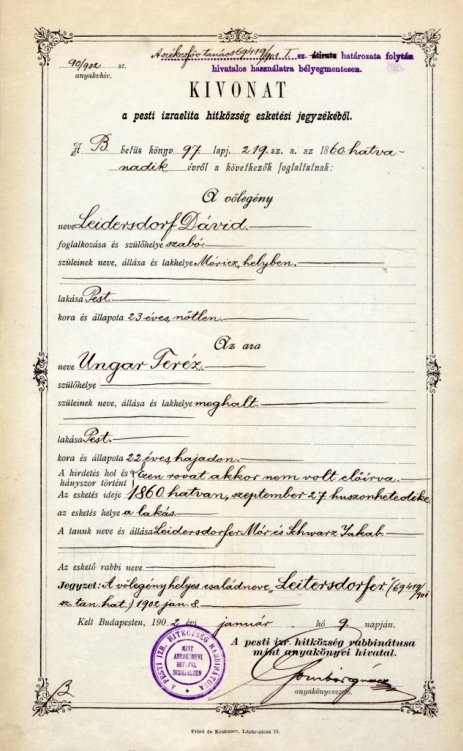 A székesfőv. tanács 69419/901 I. sz. átirata határozata folytán
90/902 sz.
anyakhiv.
hivatalos használatra bélyegmentesen.
KIVONAT
a pesti izraelita hitközség esketési jegyzékéből.
A B betüs könyv 97 lapj. 219 sz. a. az 1860 hatva-
nadik évről a következők foglaltatnak:
A vőlegény
neve Leidersdorf Dávid.
foglalkozása és szülőhelye szabó.
szüleinek neve, állása és lakhelye Móricz, helyben.
lakása Pest.
kora és állapota 23 éves, nőtlen.
Az ara
neve Ungar Teréz.
szülőhelye
szüleinek neve, állása és lakhelye meghalt.
lakása Pest.
kora és állapota 22 éves, hajadon.
A hirdetés hol és
hányszor történt Ezen rovat akkor nem volt előirva.
Az esketés ideje 1860 hatvan, szeptember 27 huszonhetedike
az esketés helye a lakás.
A tanuk neve és állása Leidersdorfer Mór és Schwarz Jakab.
Az eskető rabbi neve
Jegyzet: A vőlegény helyes családneve "Leitersdorfer" (69419/901
sz. tan. hat.) 1902 jan. 8.
Kelt Budapesten, 1902 évi január hó 9. napján.
A pesti izr. hitközség rabbinátusa
mint anyakönyvi hivatal.
A PESTI IZR. HITKÖZSÉG RABBINÁTUSA
MINT
ANYAKÖNYVI
HIVATAL
BUDAPESTEN
anyakönyvvezető.
B
Fried és Krakauer, Lázár-utcza 13.